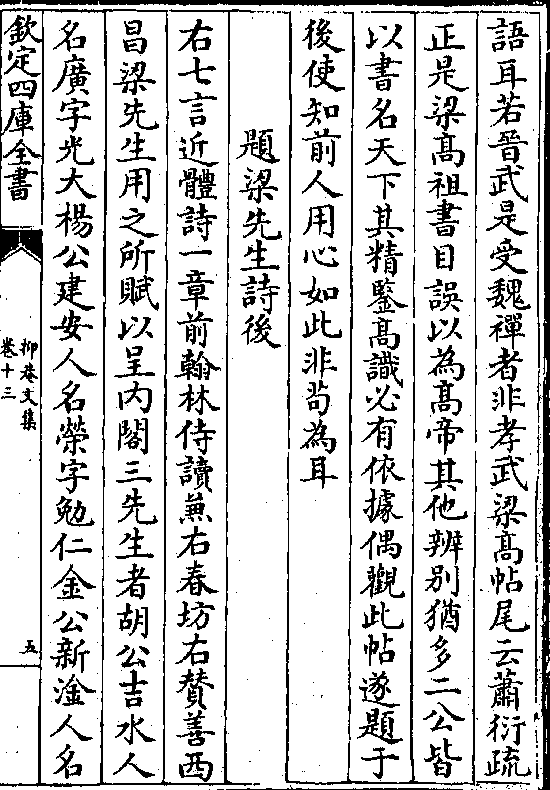 語耳若晉武是受魏禪者非孝武梁髙帖尾云蕭衍疏
正是梁髙祖書目誤以為髙帝其他辨别猶多二公皆
以書名天下其精鑒髙識必有依據偶觀此帖遂題于
後使知前人用心如此非茍為耳
題梁先生詩後
右七言近體詩一章前翰林侍讀兼右春坊右賛善西
昌梁先生用之所賦以呈内閣三先生者胡公吉水人
名廣字光大楊公建安人名榮字勉仁金公新淦人名
欽定四庫全書
抑菴文集
卷十三
五